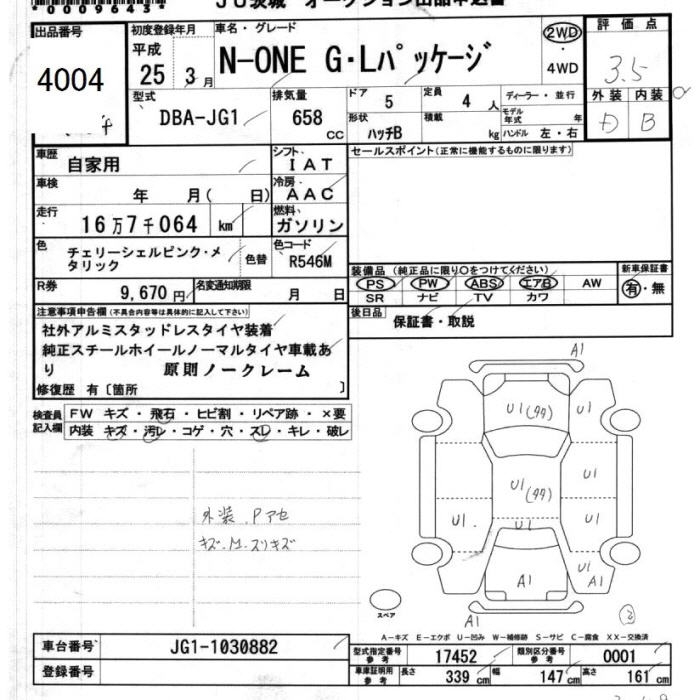 *0009643*
JU茨城 オークション出品申込書
出品番号
4004
初度登録年月
平成
25 3月
車名・グレード
N-ONE G・Lパッケージ
2WD
・
4WD
評価点
3.5
外装 内装
D B
型式
DBA-JG1
排気量
658
CC
ドア 5
定員 4 人
ディーラー・並行
形状 ハッチB
積載 kg
モデル年式 年
ハンドル 左・右
車歴
自家用
シフト
IAT
セールスポイント(正常に機能するものに限ります)
車検
年 月( 日)
冷房
AAC
走行
16万7千064 km
燃料
ガソリン
色
チェリーシェルピンク・メタリック
色替
色コード
R546M
装備品 (純正品に限り○をつけてください)
新車保証書
PS PW ABS エアB AW
有・無
SR ナビ TV カワ
R券
9,670円
名変通知期限
月 日
後日品
保証書・取説
注意事項申告欄(不具合内容等は具体的に記入して下さい)
社外アルミスタッドレスタイヤ装着
純正スチールホイールノーマルタイヤ車載あ
り 原則ノークレーム
修復歴 有〔箇所 〕
検査員記入欄
FW キズ・飛石・ヒビ割・リペア跡・×要
内装 キズ・汚レ・コゲ・穴・スレ・キレ・破レ
外装、Pアセ
キズ、M、スリキズ
A1
U1(タタ) U1
U1(タタ) U1
U1 U1 U1
U1
A1 A1
A1
スペア
A-キズ E-エクボ U-凹み W-補修跡 S-サビ C-腐食 XX-交換済
車台番号
JG1-1030882
登録番号
型式指定番号
参考
17452
類別区分番号
参考
0001
車庫証明用
参考
長さ 339 cm
幅 147 cm
高さ 161 cm